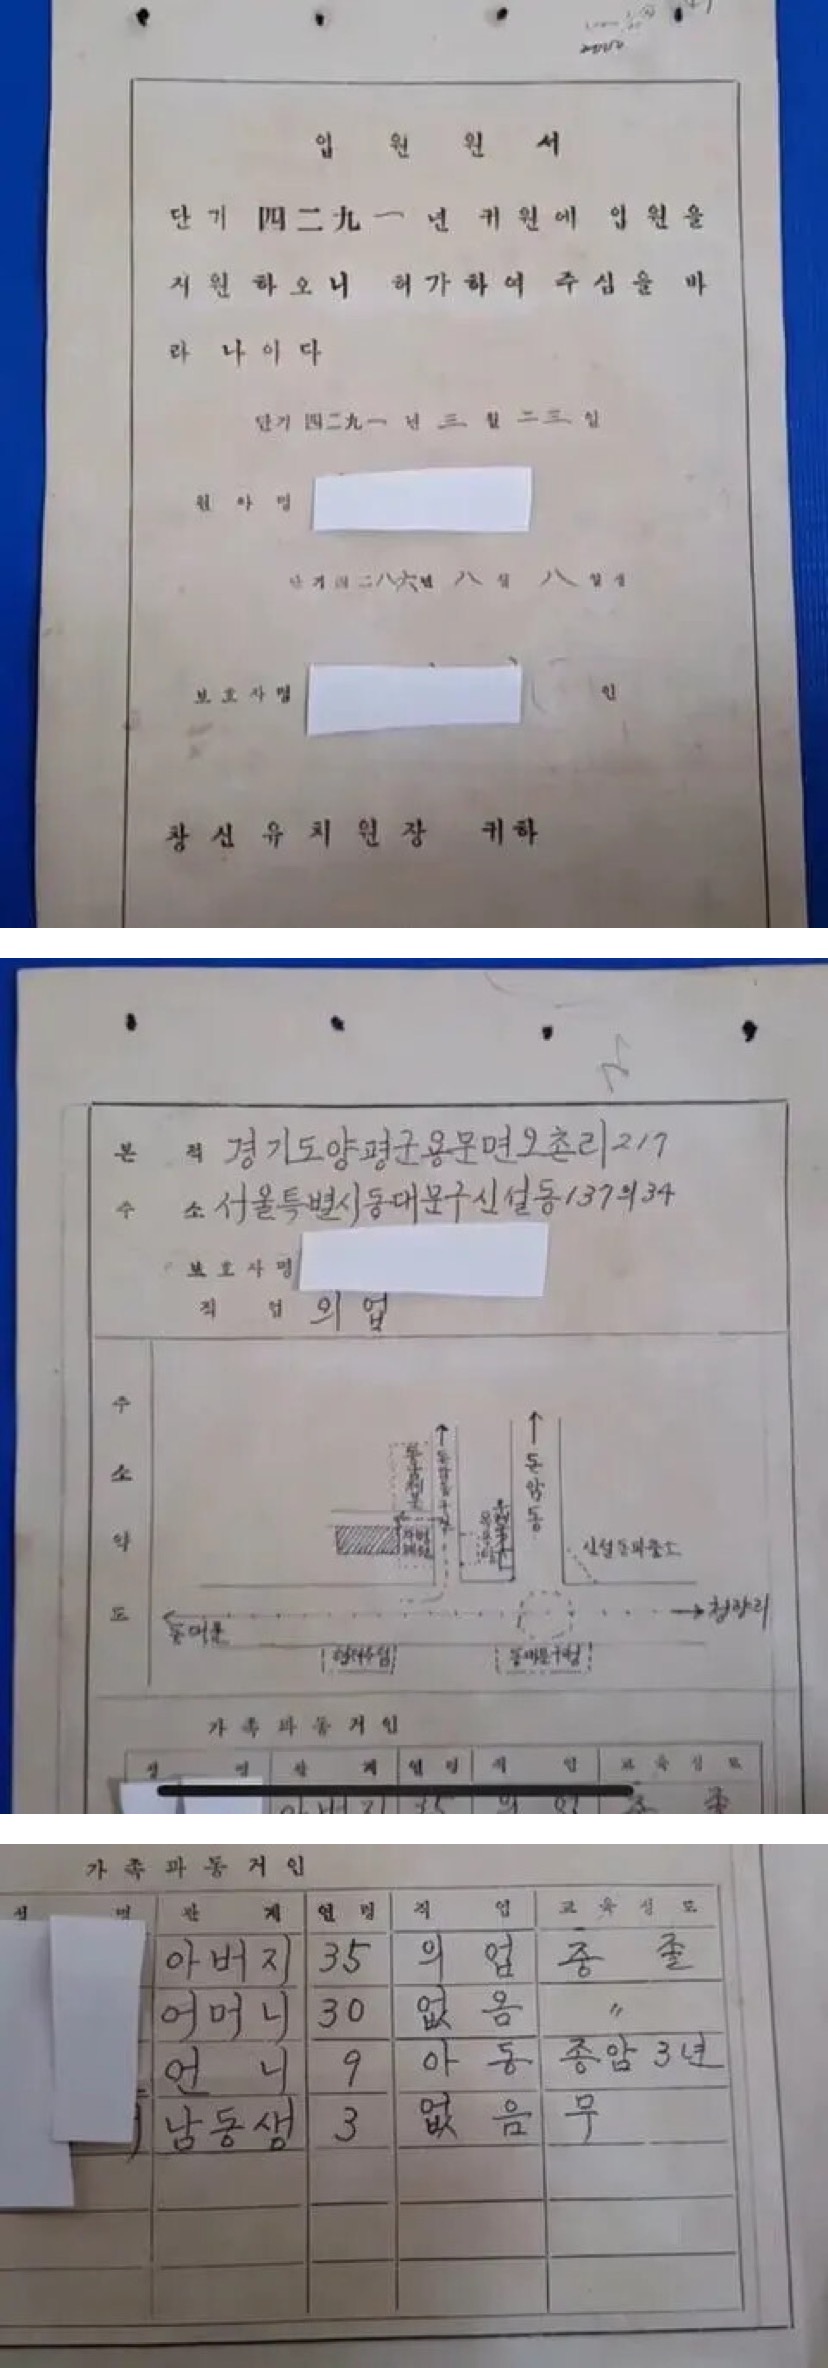 입 원 원 서
단기 四二九一 년 귀원에 입원을
지원하오니 허가하여 주심을 바
라나이다
단기 四二九一 년 三 월 二三 일
원 아 명
단기 四二八六년 八 월 八 일생
보호자명 인
창신유치원장 귀하
본 적 경기도양평군용문면오촌리217
주 소 서울특별시동대문구신설동137의34
보호자명
직 업 의업
주소약도
돈암동
신설동파출소
동대문
청량리
가족과동거인
성 명 관 계 연령 직 업 교육정도
아버지 35 의 업 중 졸
가족과동거인
성 명 관 계 연령 직 업 교육정도
아버지 35 의 업 중 졸
어머니 30 없 음 〃
언 니 9 아 동 종암 3년
남동생 3 없 음 무